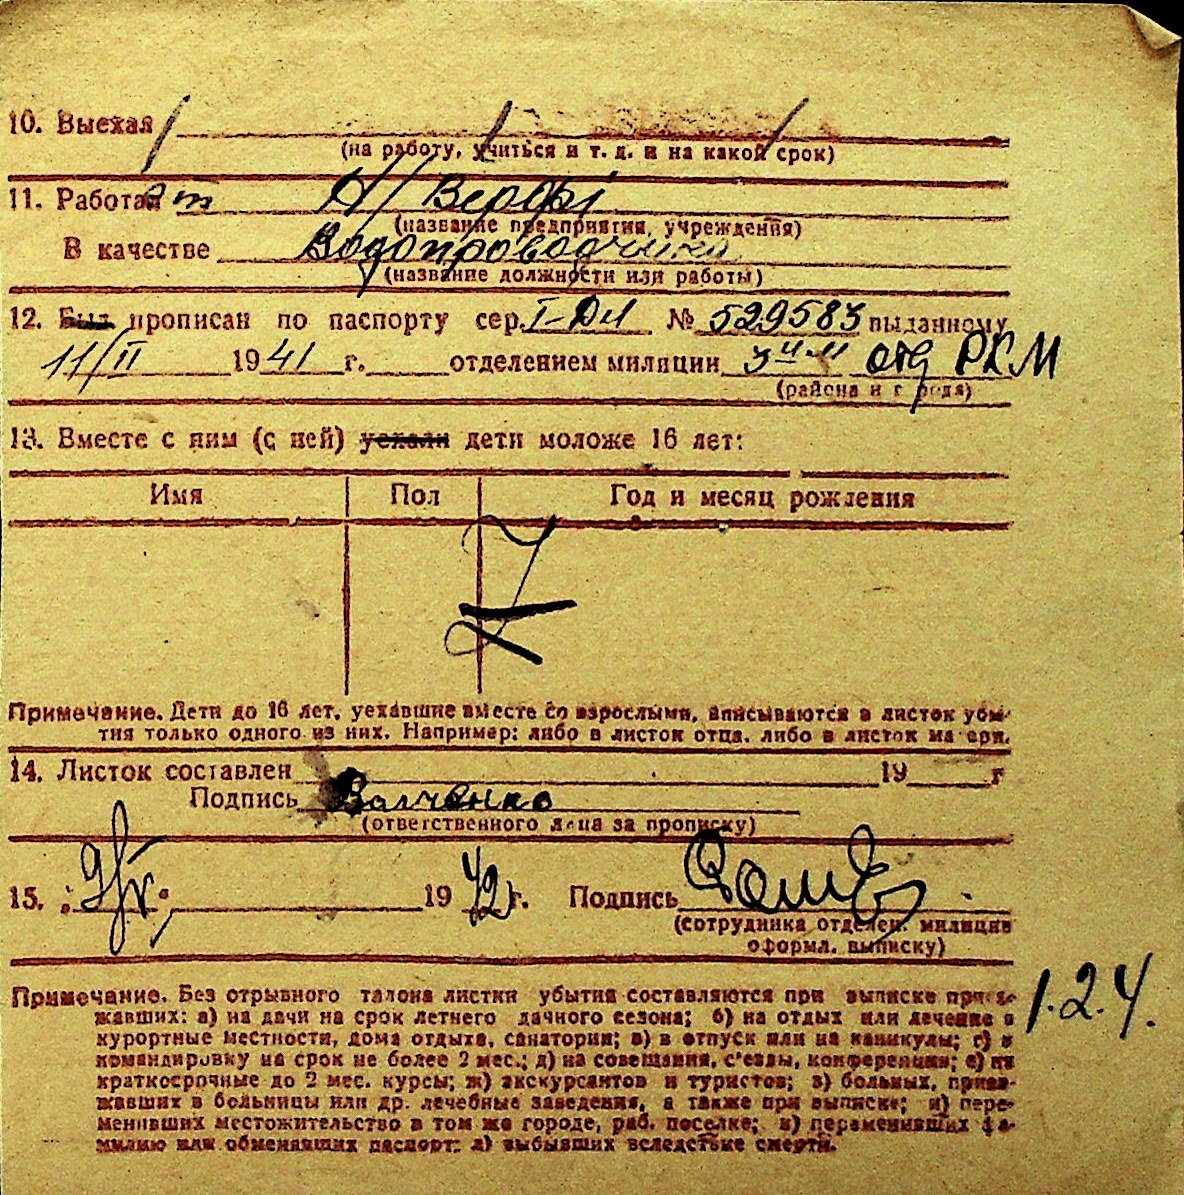 10. Выехал
(на работу, учиться и т. д. и на какой срок)
11. Работает Н/Верфі
(название предприятия, учреждения)
В качестве Водопроводчика
(название должности или работы)
12. Был прописан по паспорту сер. I-ДИ № 529583 выданному
11/II 1941 г. отделением милиции 3им отд РКМ
(района и города)
13. Вместе с ним (с ней) уехали дети моложе 16 лет:
Имя Пол Год и месяц рождения
Z
Примечание. Дети до 16 лет, уехавшие вместе со взрослыми, вписываются в листок убы-
тия только одного из них. Например: либо в листок отца, либо в листок матери.
14. Листок составлен 19 г
Подпись
(ответственного лица за прописку)
15. 1942 г. Подпись
(сотрудника отделен. милиции
оформл. выписку)
1.2.4.
Примечание. Без отрывного талона листки убытия составляются при выписке приез-
жавших: а) на дачи на срок летнего дачного сезона; б) на отдых или лечение в
курортные местности, дома отдыха, санатории; в) в отпуск или на каникулы; г) в
командировку на срок не более 2 мес.; д) на совещания, с'езды, конференции; е) на
краткосрочные до 2 мес. курсы; ж) экскурсантов и туристов; з) больных, приез-
жавших в больницы или др. лечебные заведения, а также при выписке; и) пере-
менивших местожительство в том же городе, раб. поселке; к) переменивших фа-
милию или обменявших паспорт; л) выбывших вследствие смерти.